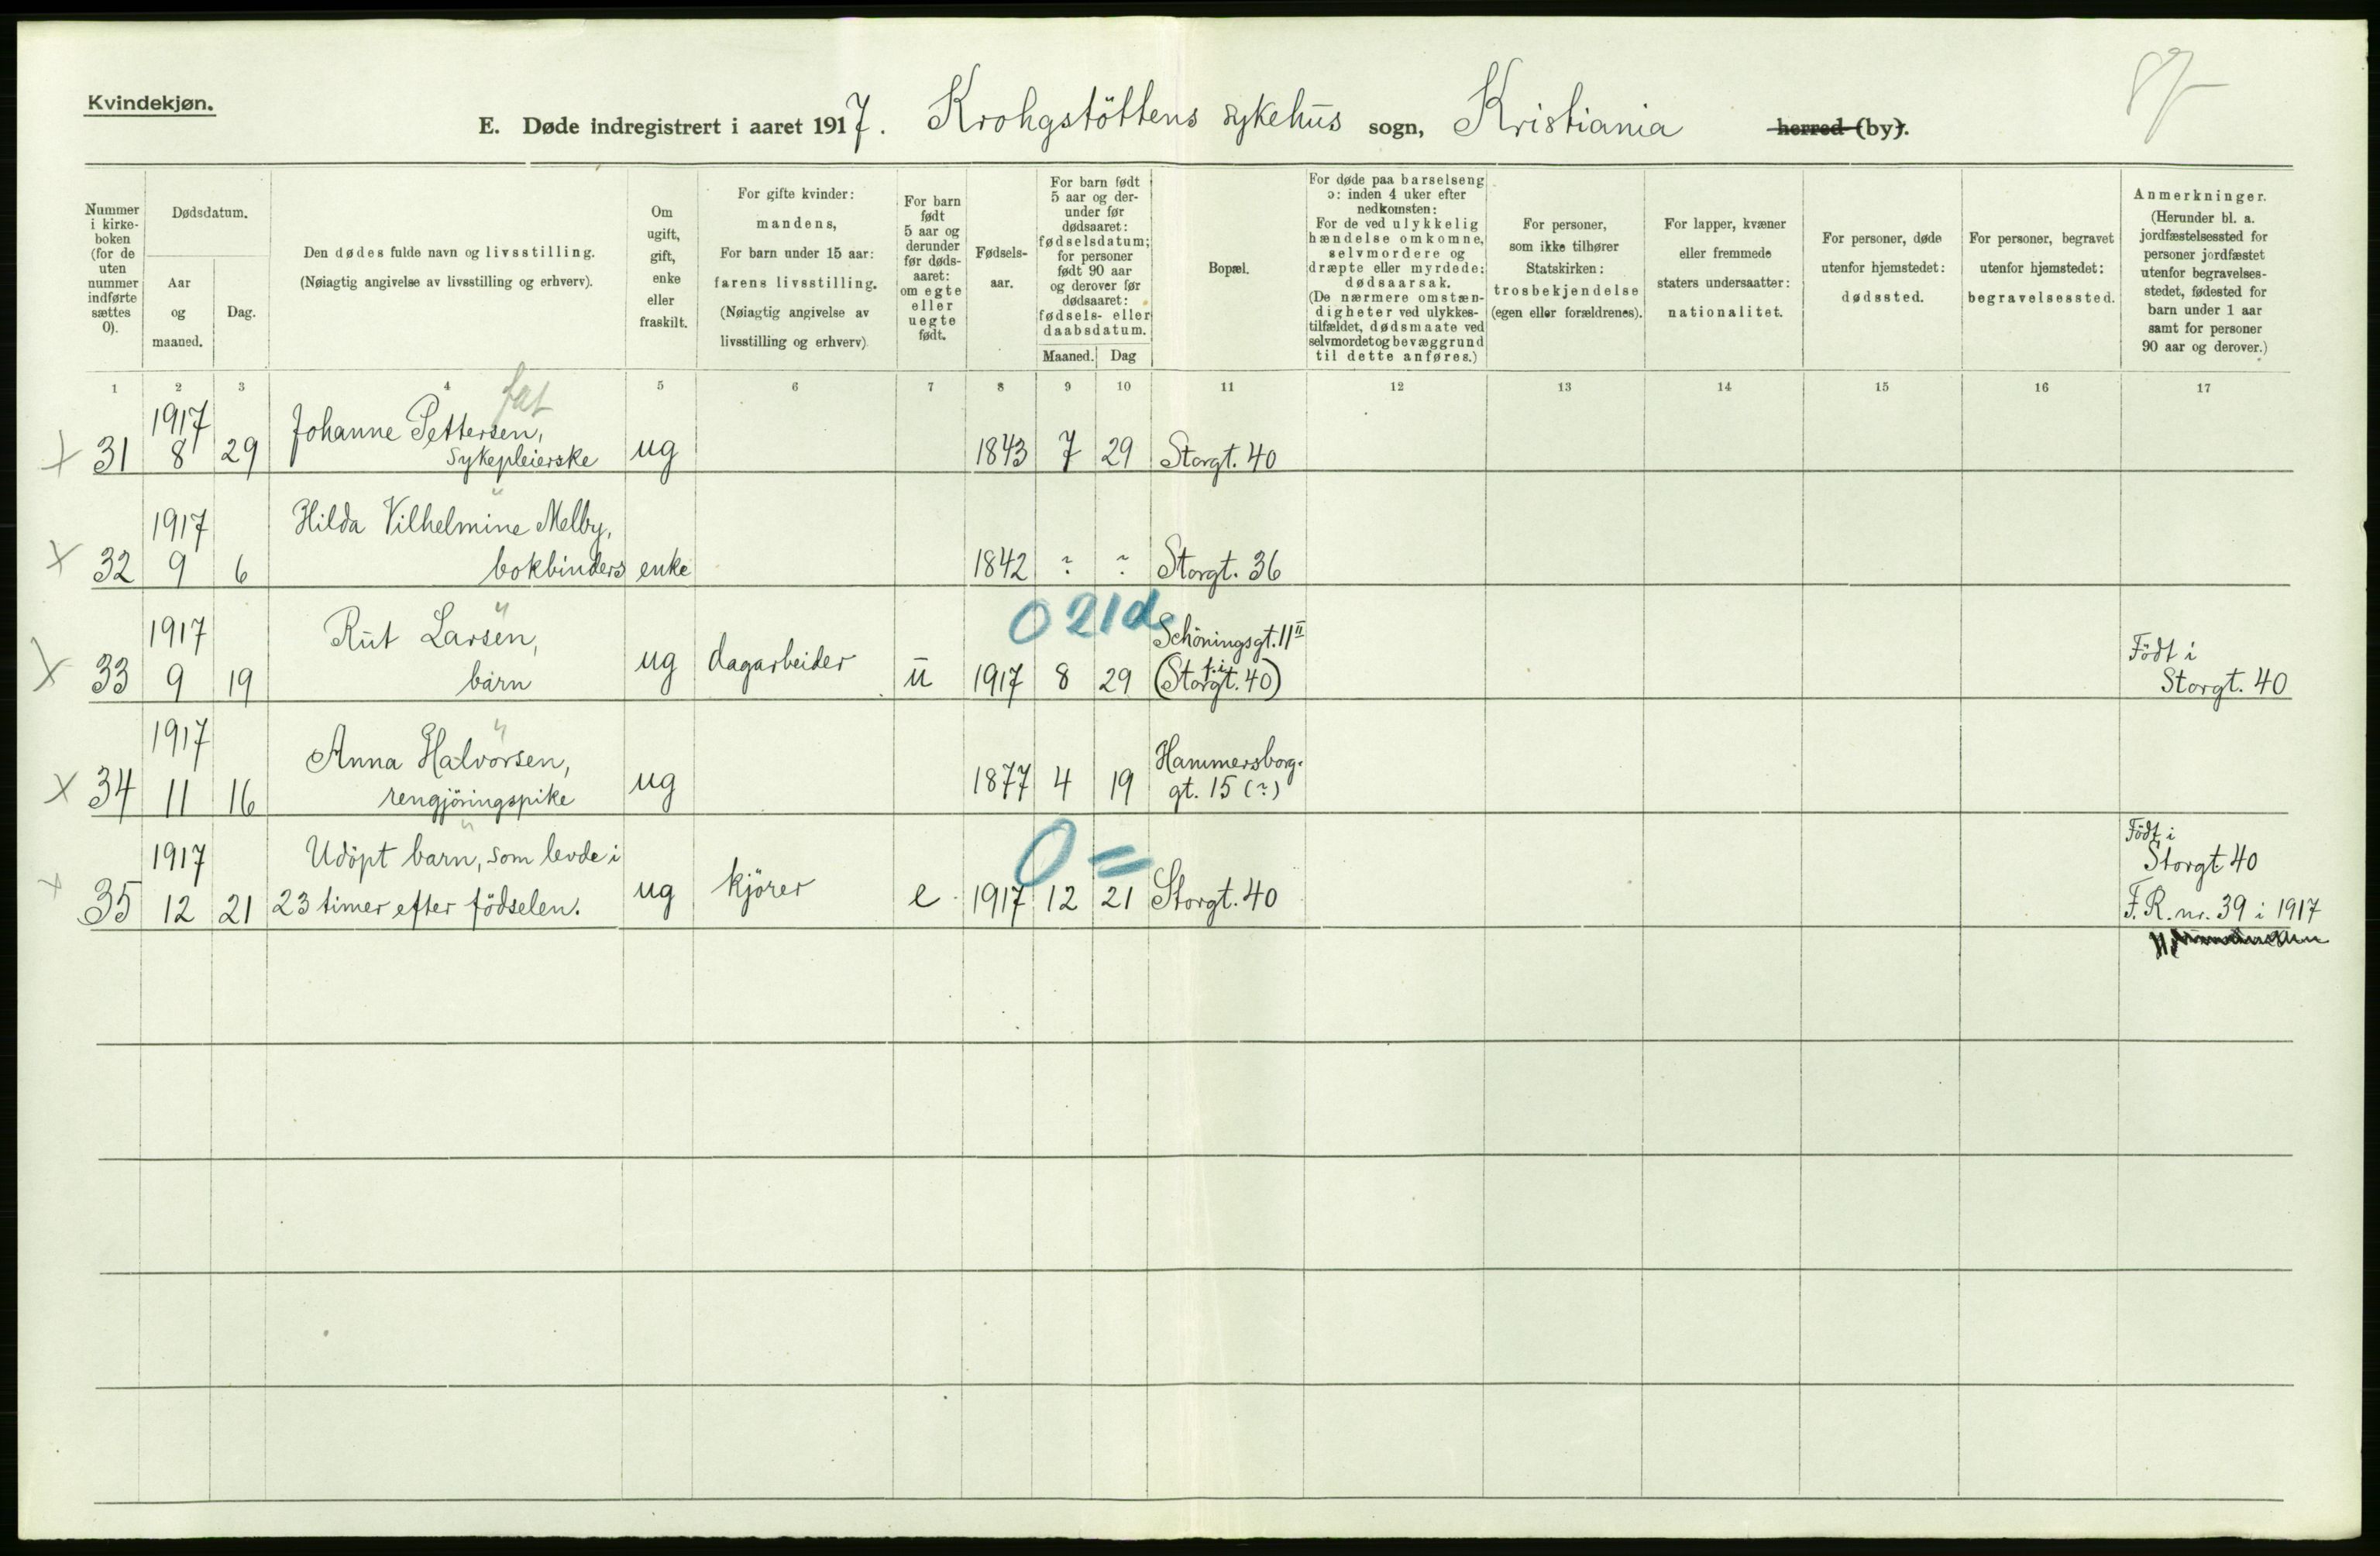 Kvindekjøn.
87
E. Døde indregistrert i aaret 1917. Krohgstöttens sykehus sogn, Kristiania herred (by).
Nummer i kirke-boken (for de uten nummer indførte sættes 0).
Dødsdatum.
Aar og maaned.
Dag.
Den dødes fulde navn og livsstilling.
(Nøiagtig angivelse av livsstilling og erhverv).
Om ugift, gift, enke eller fraskilt.
For gifte kvinder:
mandens,
For barn under 15 aar:
farens livsstilling.
(Nøiagtig angivelse av
livsstilling og erhverv)
For barn født 5 aar og derunder før døds-aaret: om egte eller uegte født.
Fødsels-aar.
For barn født 5 aar og der-under før dødsaaret: fødselsdatum; for personer født 90 aar og derover før dødsaaret: fødsels- eller daabsdatum.
Maaned.
Dag
Bopæl.
For døde paa barselseng ɔ: inden 4 uker efter nedkomsten: For de ved ulykkelig hændelse omkomne, selvmordere og dræpte eller myrdede: dødsaarsak. (De nærmere omstæn-digheter ved ulykkes-tilfældet, dødsmaate ved selvmordet og bevæggrund til dette anføres.)
For personer, som ikke tilhører Statskirken: trosbekjendelse (egen eller forældrenes).
For lapper, kvæner eller fremmede staters undersaatter: nationalitet.
For personer, døde utenfor hjemstedet: dødssted.
For personer, begravet utenfor hjemstedet: begravelsessted.
Anmerkninger. (Herunder bl. a. jordfæstelsessted for personer jordfæstet utenfor begravelses-stedet, fødested for barn under 1 aar samt for personer 90 aar og derover.)
1 2 3 4 5 6 7 8 9 10 11 12 13 14 15 16 17
fat
x 31 1917 8 29 Johanne Pettersen, sykepleierske ug 1843 7 29 Storgt. 40
x 32 1917 9 6 Hilda Vilhelmine Melby, bokbinders enke 1842 ? ? Storgt. 36
0 21d
x 33 1917 9 19 Rut Larsen, barn ug dagarbeider u 1917 8 29 Schöningsgt. 11 II (f. i Storgt. 40) Född i Storgt. 40
x 34 1917 11 16 Anna Halvorsen, rengjöringspike ug 1877 4 19 Hammersborg. gt. 15 (?)
0 =
x 35 1917 12 21 Udöpt barn, som levde i 23 timer efter födselen. ug kjörer e 1917 12 21 Storgt. 40 Född i Storgt 40 F. R. nr. 39 i 1917